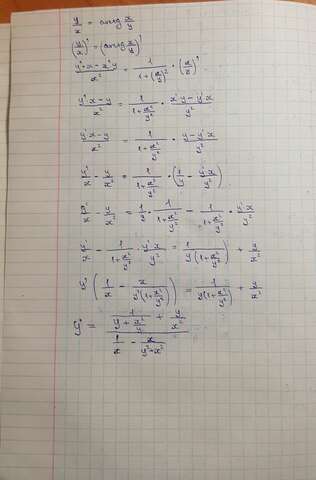 y/x = arctg x/y
(y/x)' = (arctg x/y)'
(y'·x - x'·y)/x² = 1/(1+(x/y)²) · (x/y)'
(y'·x - y)/x² = 1/(1+x²/y²) · (x'·y - y'·x)/y²
(y'·x - y)/x² = 1/(1+x²/y²) · (y - y'·x)/y²
y'/x - y/x² = 1/(1+x²/y²) · (1/y - y'·x/y²)
y'/x - y/x² = 1/y · 1/(1+x²/y²) - 1/(1+x²/y²) · y'·x/y²
y'/x - 1/(1+x²/y²) · y'·x/y² = 1/(y(1+x²/y²)) + y/x²
y'(1/x - x/(y²(1+x²/y²))) = 1/(y(1+x²/y²)) + y/x²
y' = (1/(y+x²/y) + y/x²)/(1/x - x/(y²+x²))